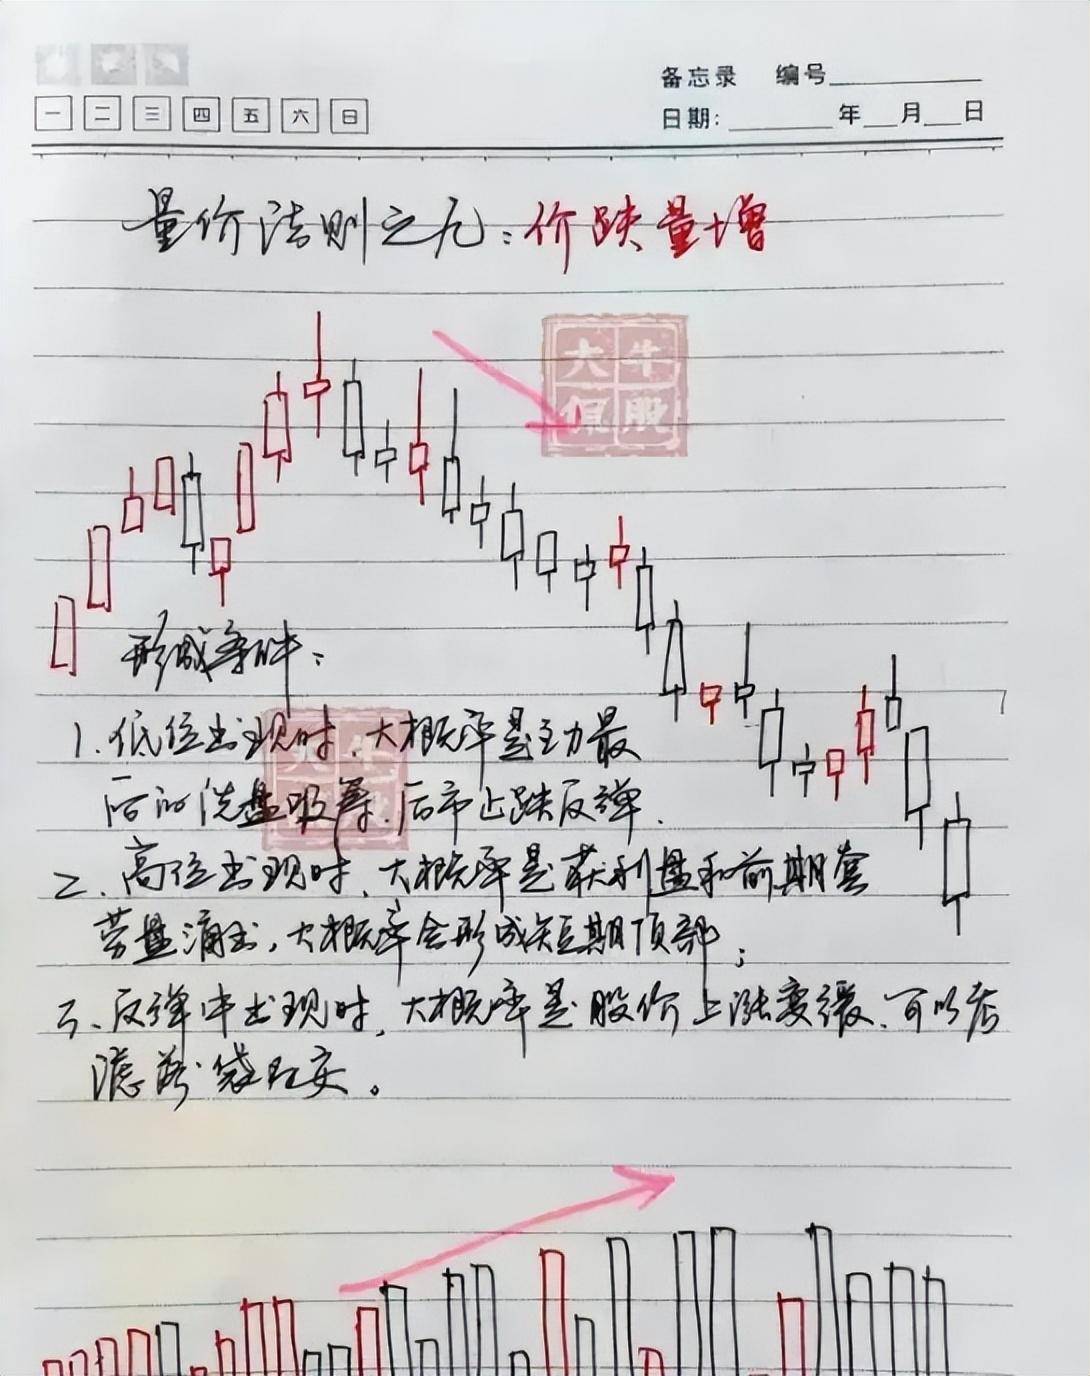 备忘录 编号
一 二 三 四 五 六 日
日期: 年 月 日
量价法则之九:价跌量增
大牛
侃股
形成条件:
1.低位出现时,大概率是主力最
后的洗盘吸筹,后市止跌反弹.
2、高位出现时、大概率是获利盘和前期套
劳盘涌出,大概率会形成短期顶部;
3、反弹中出现时,大概率是股价上涨变缓、可以考
虑落袋为安。